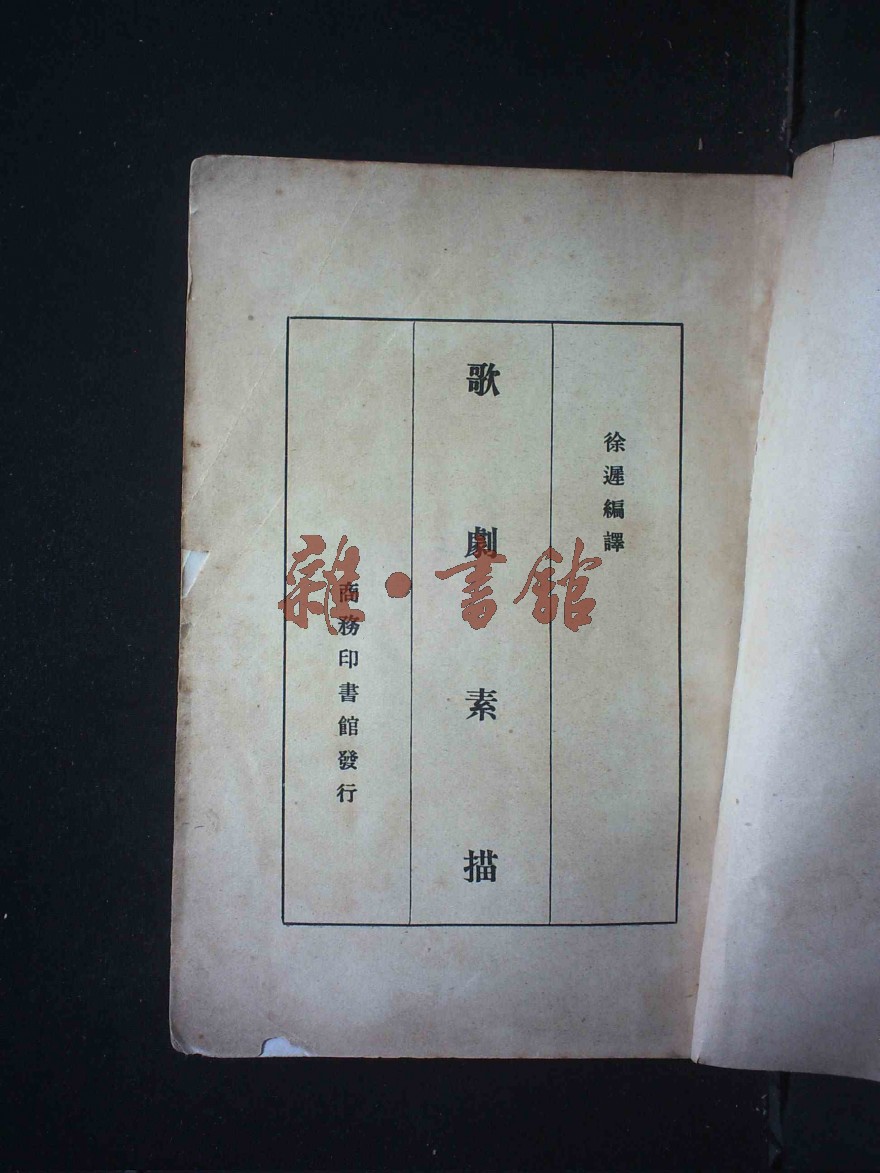 徐遲編譯
歌劇素描
商務印書館發行
雜·書館